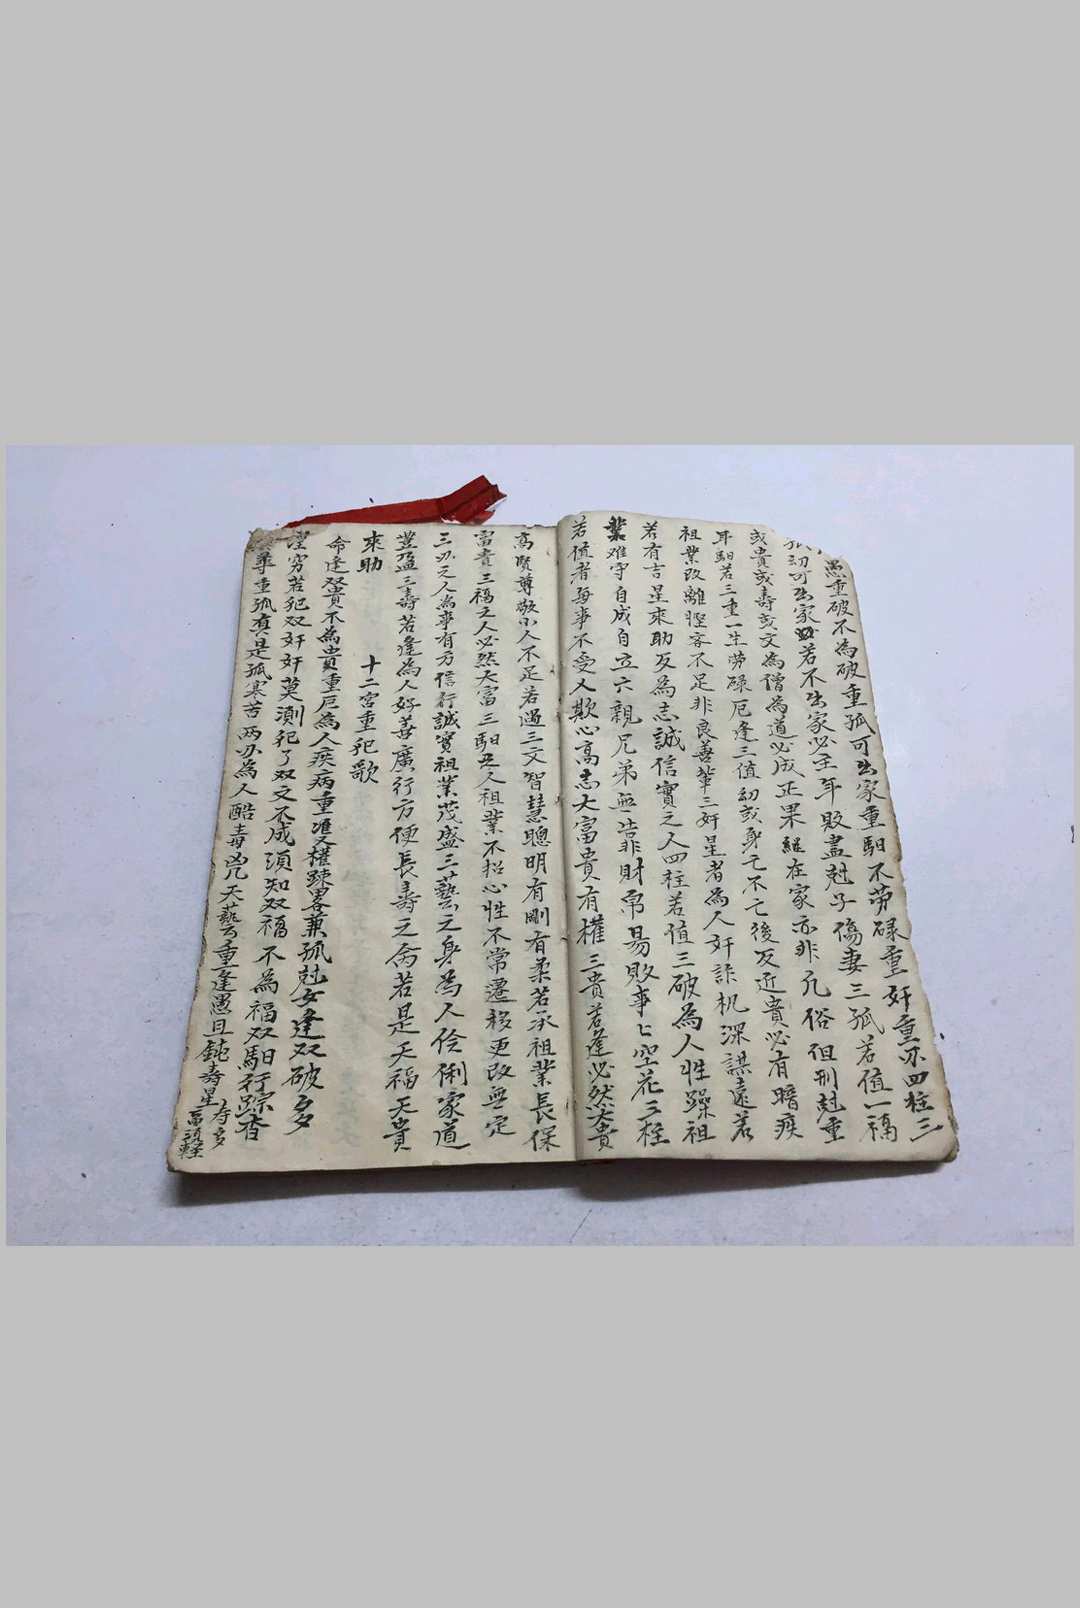 愚重破不為破重孤可出家重馹不劳碌重奸重刃四柱三
孤幼可出家若不出家必主年敗盡尅子傷妻三孤若值一福
或貴或壽或文為僧為道必成正果縱在家亦非凡俗但刑尅重
耳馹若三重一生劳碌厄逢三值幼或身亡不亡後反近貴必有暗疾
祖業改離慳吝不足非良善輩三奸星者為人奸詐机深謀遠若
若有吉星來助反為志誠信實之人四柱若值三破為人性躁祖
業难守自成自立六親兄弟無靠財帛易敗事亡空花三柱
若值者每事不受人欺心高志大富貴有權三貴若逢必然大貴
高賢尊敬小人不足若遇三文智慧聰明有剛有柔若承祖業長保
富貴三福之人必然大富三馹之人祖業不招心性不常遷移更改無定
三刃之人為事有方信行誠實祖業茂盛三藝之身為人伶俐家道
豐盈三壽若逢為人好善廣行方便長壽之命若是天福天貴
來助 十二宮重犯歌
命逢双貴不為貴重厄為人疾病重双權踈畧兼孤尅女逢双破多
窮若犯双奸奸莫測犯了双文不成須知双福不為福双馹行踪杳
重孤真是孤寒苦两刃為人酷毒兇天藝重逢愚且鈍壽星寿多